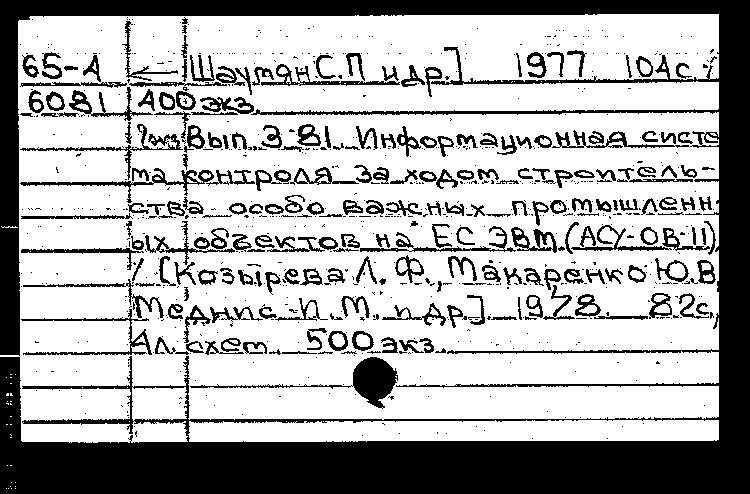 65-А ← Шаумян С.П. и др.] 1977. 104с.
6081 400 экз.
1 экз Вып. 3-81. Информационная систе
ма контроля за ходом строитель-
ства особо важных промышленн
ых объектов на ЕС ЭВМ (АСУ-ОВ-11)
/ [Козырева Л. Ф., Макаренко Ю.В
Меднис И. М. и др]. 1978. 82с,
4л. схем. 500 экз.